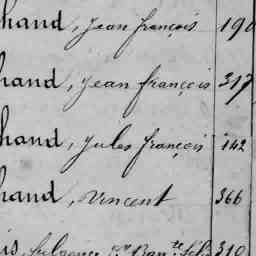 hand, Jean françois 190
hand, Jean françois 317
hand, Jules françois 142
hand, Vincent 366
310